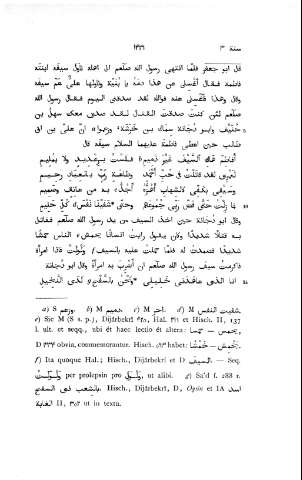 سنة ٣ ١۴٢٦
قال ابو جعفر فلمّا انتهى رسول الله صلّعم الى اهله ناول سيفه ابنته
فاطمة فقال اغسلى عن هذا دمه يا بُنَيّة وناولها علىٌّ عم سيفه
وقال وهذا فاغسلى عنه فوالله لقد صدقنى اليوم فقال رسول الله
صلّعم لئن كنت صدقت القتال لقد صدق معك سهل بن
حُنَيْف وابو دُجانة سِماك بن خَرَشَة وزعموا انّ علىّ بن ابى
طالب حين اعطى فاطمة عليهما السلام سيفه قال
أفاطم هاكِ السَيْفَ غَيْرَ ذَميمِ فلستُ بِرِعْديدٍ ولا بِمُليمِ
لَعَمْرى لقد قاتلتُ فى حُبِّ أَحْمَدٍ وطاعَةِ رَبٍّ بالعِبادِ رحيمِ
وسَيفى بكَفّى كالشِهابِ أَهُزُّهُ أَجُذُّ به من عاتِقٍ وصَميمِ
فما زِلْتُ حتّى فَضَّ رَبّى جُموعَهُمْ وحتّى شَفَيْنا نَفْسَ كُلِّ حليمِ
وقال ابو دُجانة حين اخذ السيف من يد رسول الله صلّعم فقاتل
به قتالًا شديدًا وكان يقول رايتُ انسانًا يخمش الناس خمشًا
شديدًا فصمدتُ له فلمّا حملتُ عليه بالسيف وَلْوَلَتْ فاذا امرأة
فاكرمتُ سيف رسول الله صلّعم ان أَضْرِبَ به امرأةً وقال ابو دجانة
انا الذى عاهدنى خليلى ونَحْنُ بالسَّفْحِ لدى النخيلِ
a) S وزعم. b) M عميم. c) M اجر. d) M شفيت النفس.
e) Sic M (S s. p.), Dijârbekrî ۴٣٨, Hal. ٣٢١ et Hisch. II, 137
l. ult. et seqq., ubi et haec lectio et altera: يحمس — حمسا,
D ٢٢٤ obvia, commemorantur. Hisch. ٥٩٣ habet: يَخْمِش — خَمْشًا.
f) Ita quoque Hal.; Hisch., Dijârbekrî et D السيف. — Seq.
وَلْوَلَتْ per prolepsin pro وَلْوَلَ, ut alibi. g) Sa'd f. 288 r.
بالشعب فى السفح. Hisch., Dijârbekrî, D, Osjûn et IA اسد
الغابة II, ٣٥٢ ut in textu.